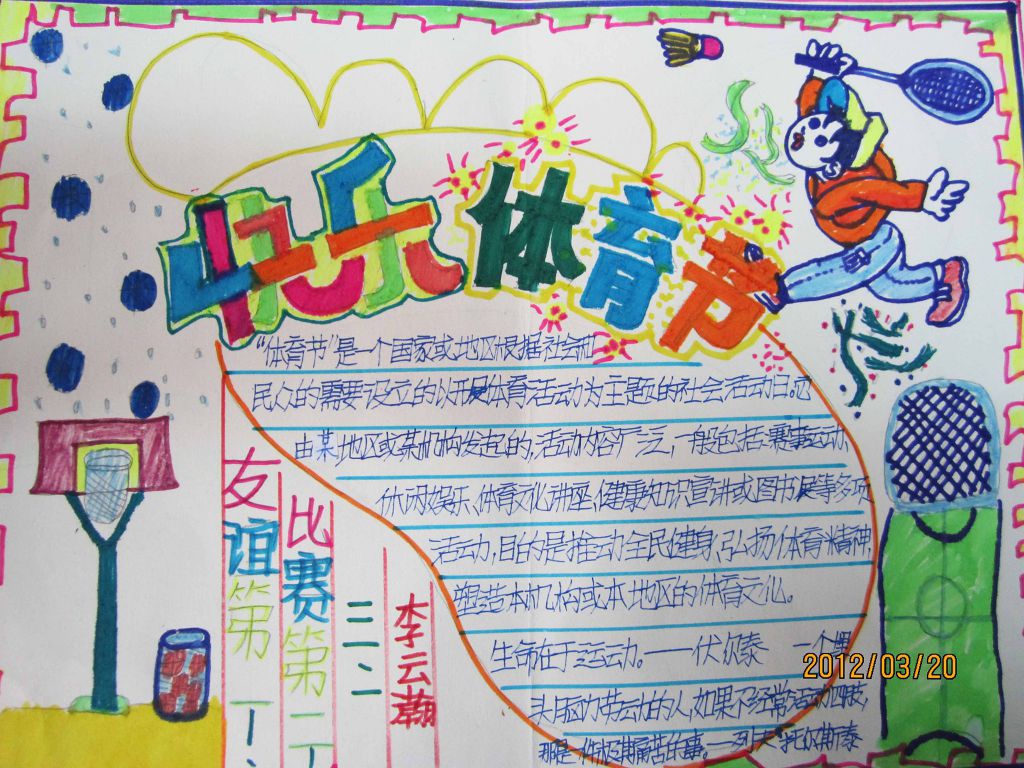 快乐体育节
“体育节”是一个国家或地区根据社会和
民众的需要设立的以开展体育活动为主题的社会活动日。它
由某地区或某机构发起的,活动内容广泛,一般包括:赛事运动、
休闲娱乐、体育文化讲座、健康知识宣讲或图书展等多项
活动,目的是推动全民健身,弘扬体育精神,
塑造本机构或本地区的体育文化。
生命在于运动。——伏尔泰 一个埋
头脑力劳动的人,如果不经常活动四肢,
那是一件极其痛苦的事。—列夫·托尔斯泰
友谊第一
比赛第二
三二、
李云瀚
2012/03/20